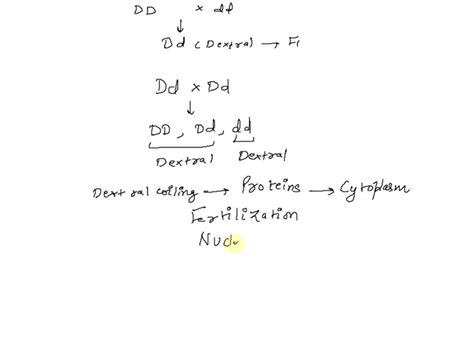 DD × dd
↓
Dd (Dextral) → F1
Dd × Dd
↓
DD, Dd, dd
Dextral Dextral
Dextral coiling → Proteins → Cytoplasm
Fertilization
Nucl